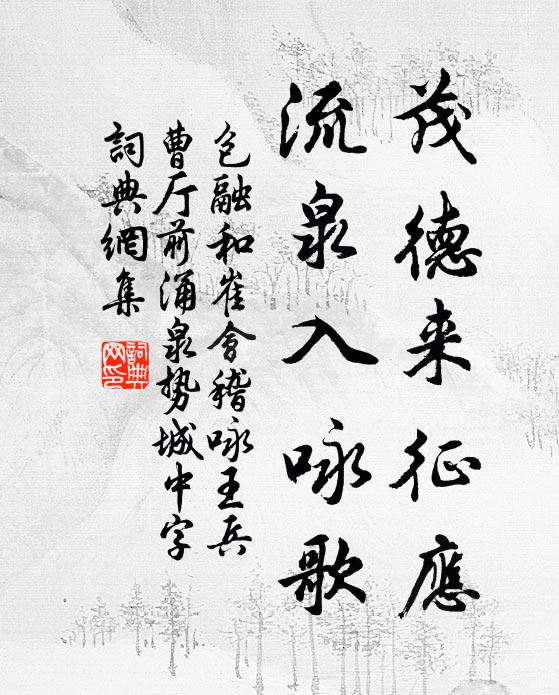 茂德来征應
流泉入咏歌
包融和崔會稽咏王兵
曹厅前涌泉势城中字
詞典網集
詞典网印